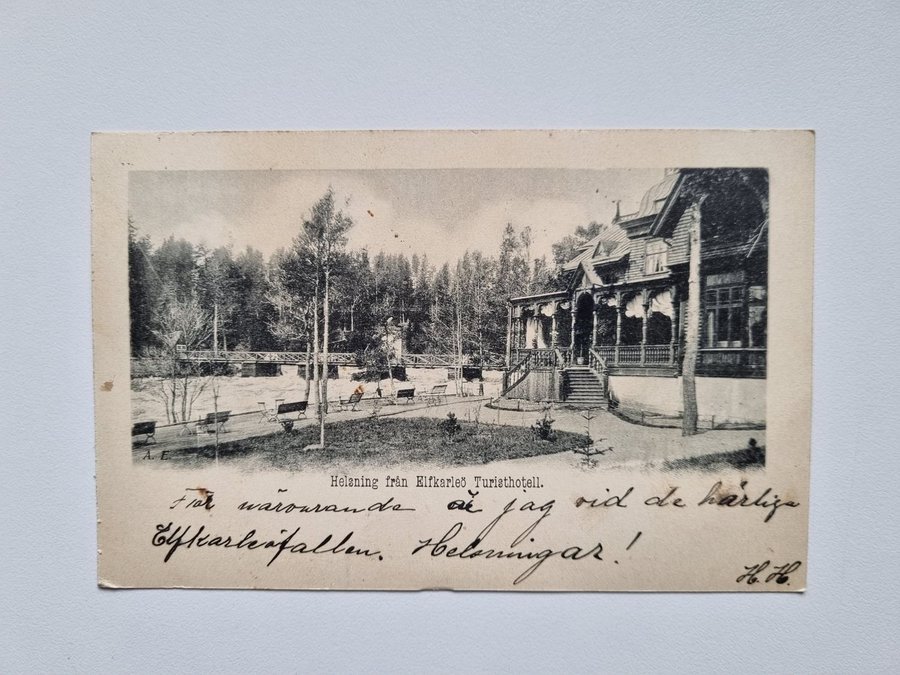 A. E.
Helsning från Elfkarleö Turisthotell.
För närvarande är jag vid de härliga
Elfkarleöfallen. Helsningar!
H. H.